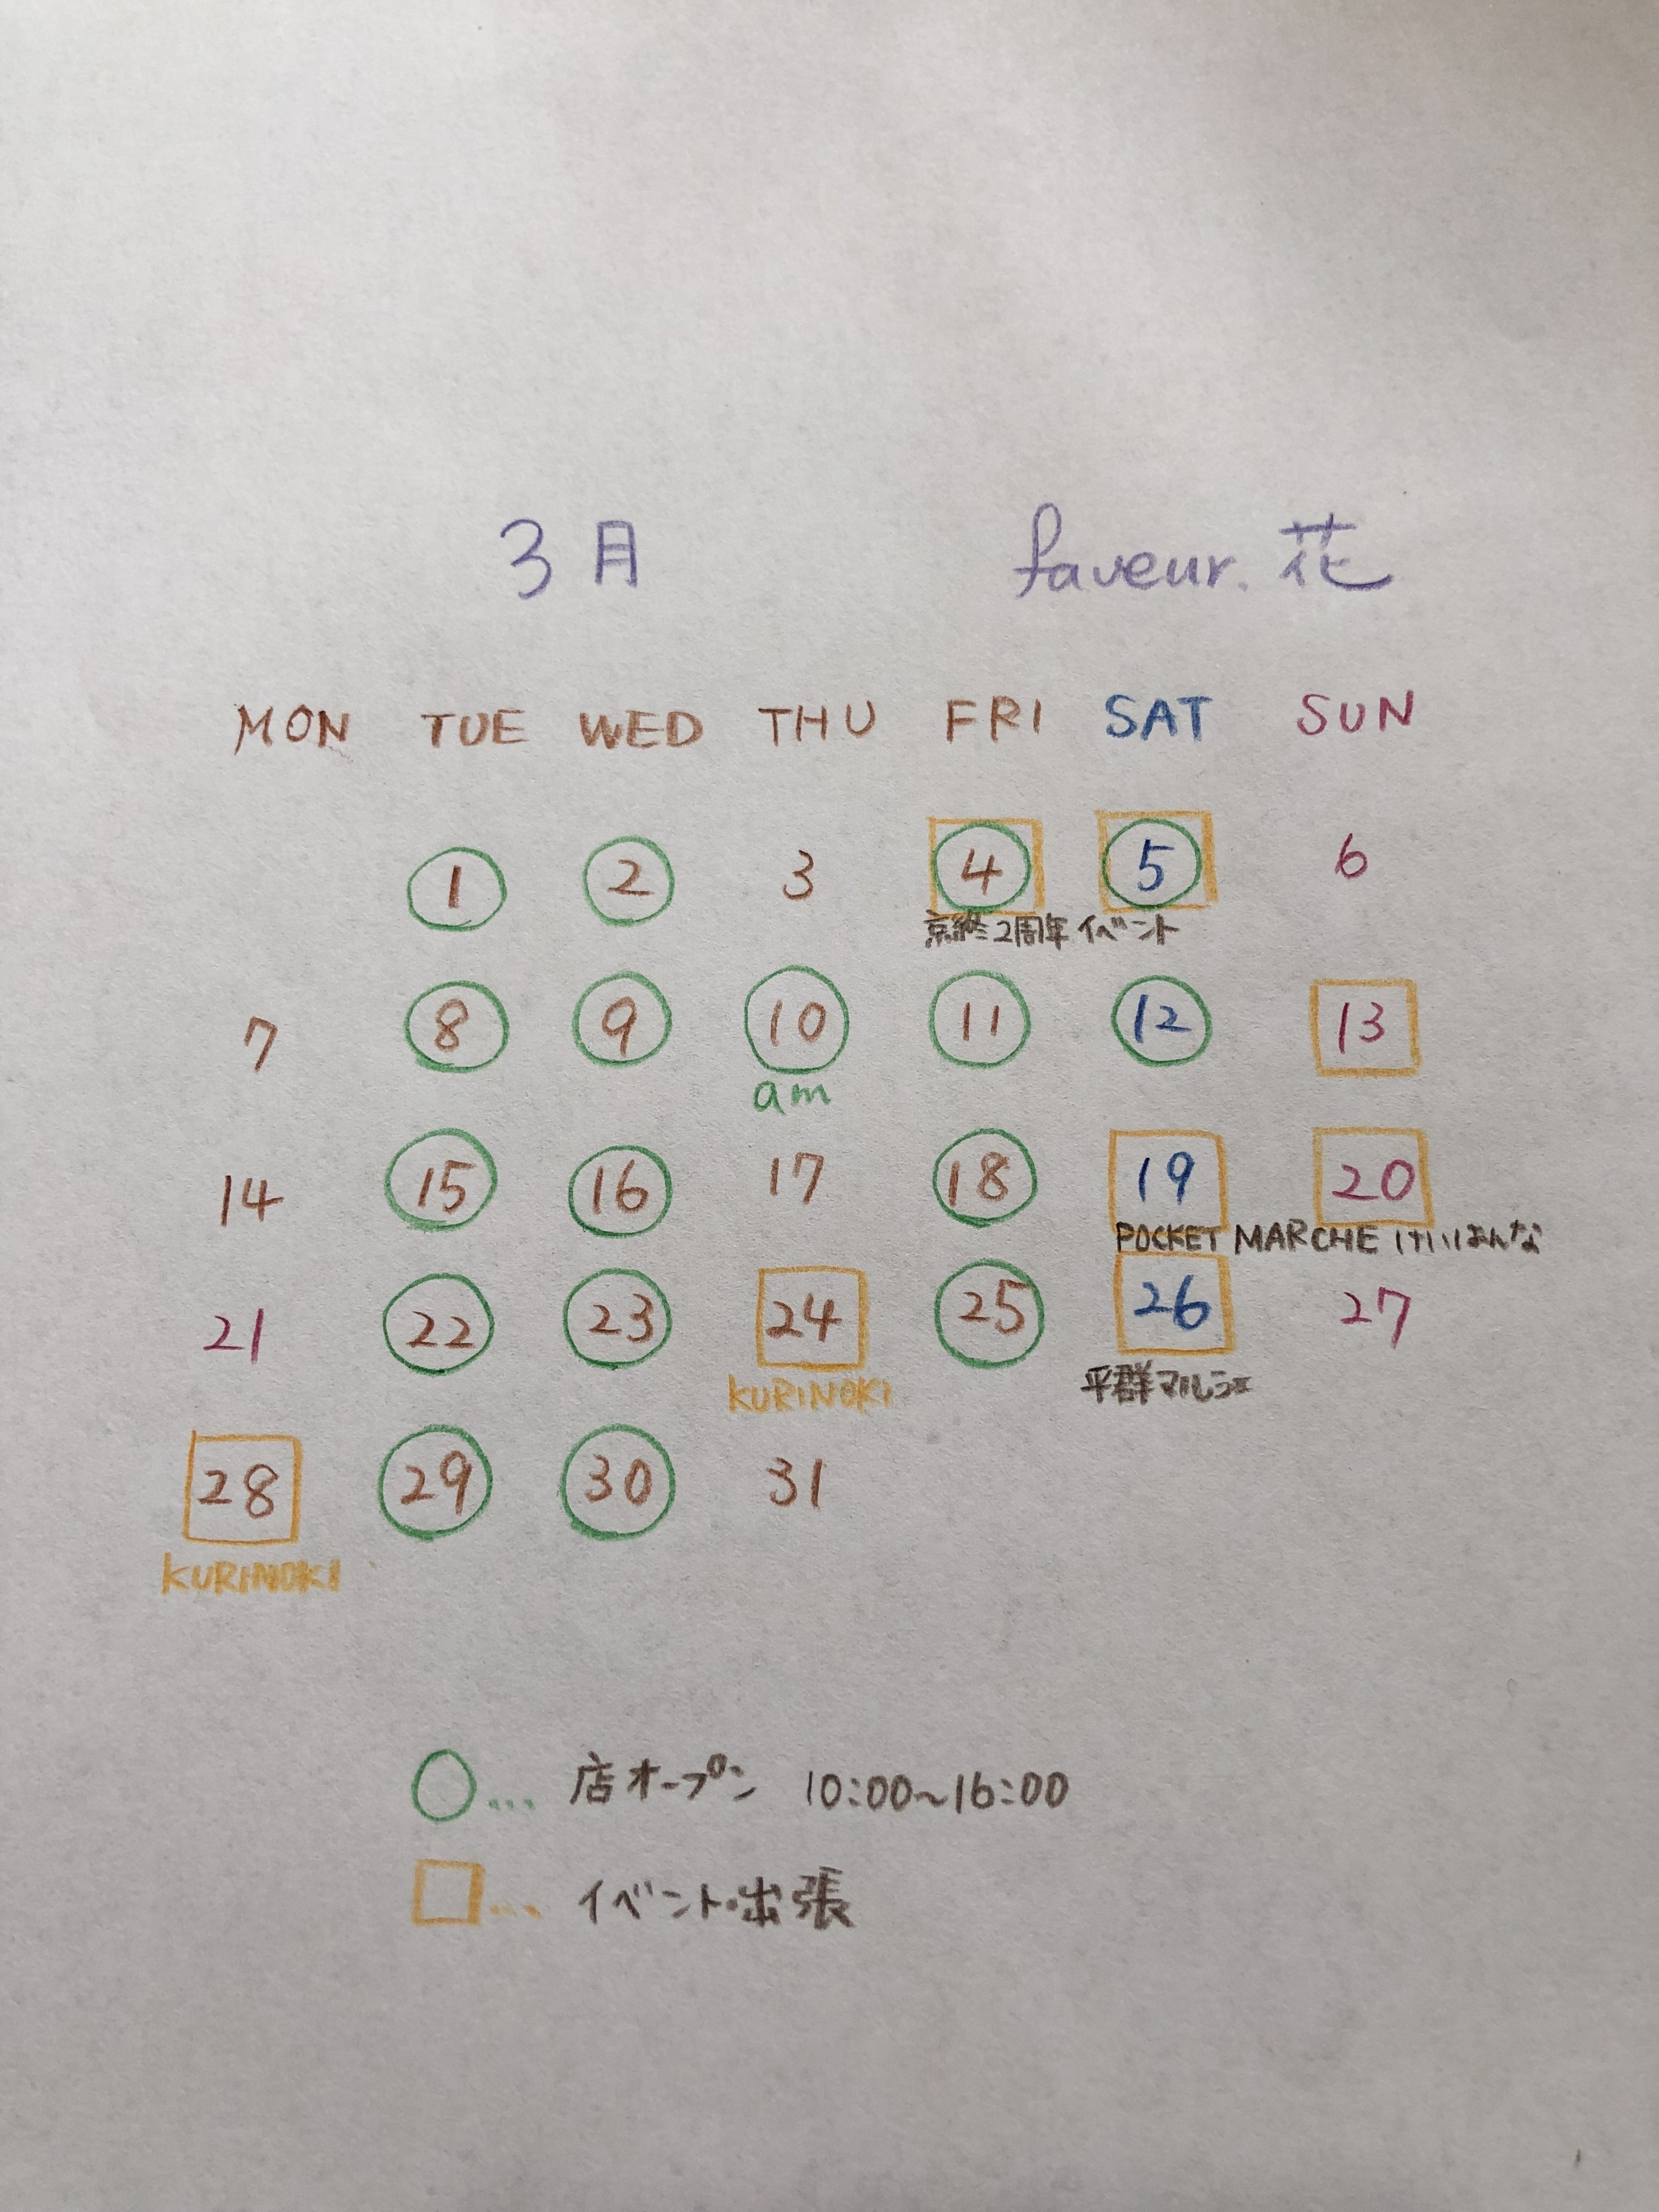 3月 faveur. 花
MON TUE WED THU FRI SAT SUN
1 2 3 4 5 6
京終2周年イベント
7 8 9 10 11 12 13
am
14 15 16 17 18 19 20
POCKET MARCHE けいはんな
21 22 23 24 25 26 27
KURINOKI 平群マルシェ
28 29 30 31
KURINOKI
○... 店オープン 10:00~16:00
□... イベント・出張